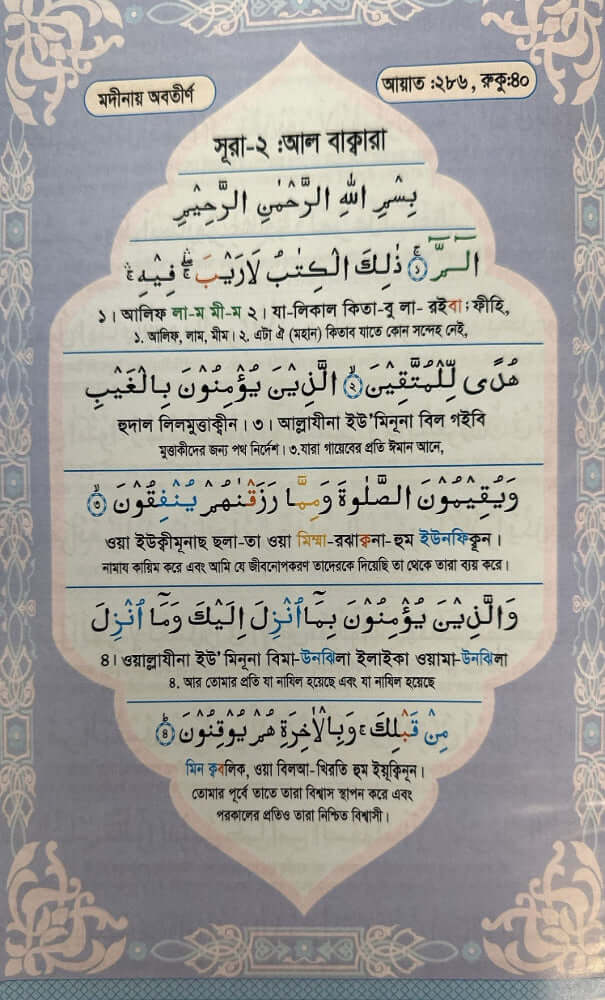 মদীনায় অবতীর্ণ
আয়াত :২৮৬, রুকু:৪০
সূরা-২ :আল বাক্বারা
بِسْمِ اللهِ الرَّحْمٰنِ الرَّحِيْمِ
الٓـمّٓ ۚ﴿۱﴾ ذٰلِكَ الْكِتٰبُ لَا رَيْبَ ۛۖ فِيْهِ ۛۚ
১। আলিফ লা-ম মী-ম ২। যা-লিকাল কিতা-বু লা- রইবা; ফীহি,
১. আলিফ, লাম, মীম। ২. এটা ঐ (মহান) কিতাব যাতে কোন সন্দেহ নেই,
هُدًى لِّلْمُتَّقِيْنَ ۙ﴿۲﴾ الَّذِيْنَ يُؤْمِنُوْنَ بِالْغَيْبِ
হুদাল লিলমুত্তাক্বীন। ৩। আল্লাযীনা ইউ'মিনূনা বিল গইবি
মুত্তাকীদের জন্য পথ নির্দেশ। ৩.যারা গায়েবের প্রতি ঈমান আনে,
وَيُقِيْمُوْنَ الصَّلٰوةَ وَمِمَّا رَزَقْنٰهُمْ يُنْفِقُوْنَ ۙ﴿۳﴾
ওয়া ইউক্বীমূনাছ ছলা-তা ওয়া মিম্মা-রঝাক্বনা-হুম ইউনফিকূন।
নামায কায়িম করে এবং আমি যে জীবনোপকরণ তাদেরকে দিয়েছি তা থেকে তারা ব্যয় করে।
وَالَّذِيْنَ يُؤْمِنُوْنَ بِمَآ اُنْزِلَ اِلَيْكَ وَمَآ اُنْزِلَ
৪। ওয়াল্লাযীনা ইউ'মিনূনা বিমা-উনঝিলা ইলাইকা ওয়ামা-উনঝিলা
৪. আর তোমার প্রতি যা নাযিল হয়েছে এবং যা নাযিল হয়েছে
مِنْ قَبْلِكَ ۚ وَبِالْاٰخِرَةِ هُمْ يُوْقِنُوْنَ ؕ﴿۴﴾
মিন ক্ববলিক, ওয়া বিলআ-খিরতি হুম ইয়ূক্বিনূন।
তোমার পূর্বে তাতে তারা বিশ্বাস স্থাপন করে এবং
পরকালের প্রতিও তারা নিশ্চিত বিশ্বাসী।